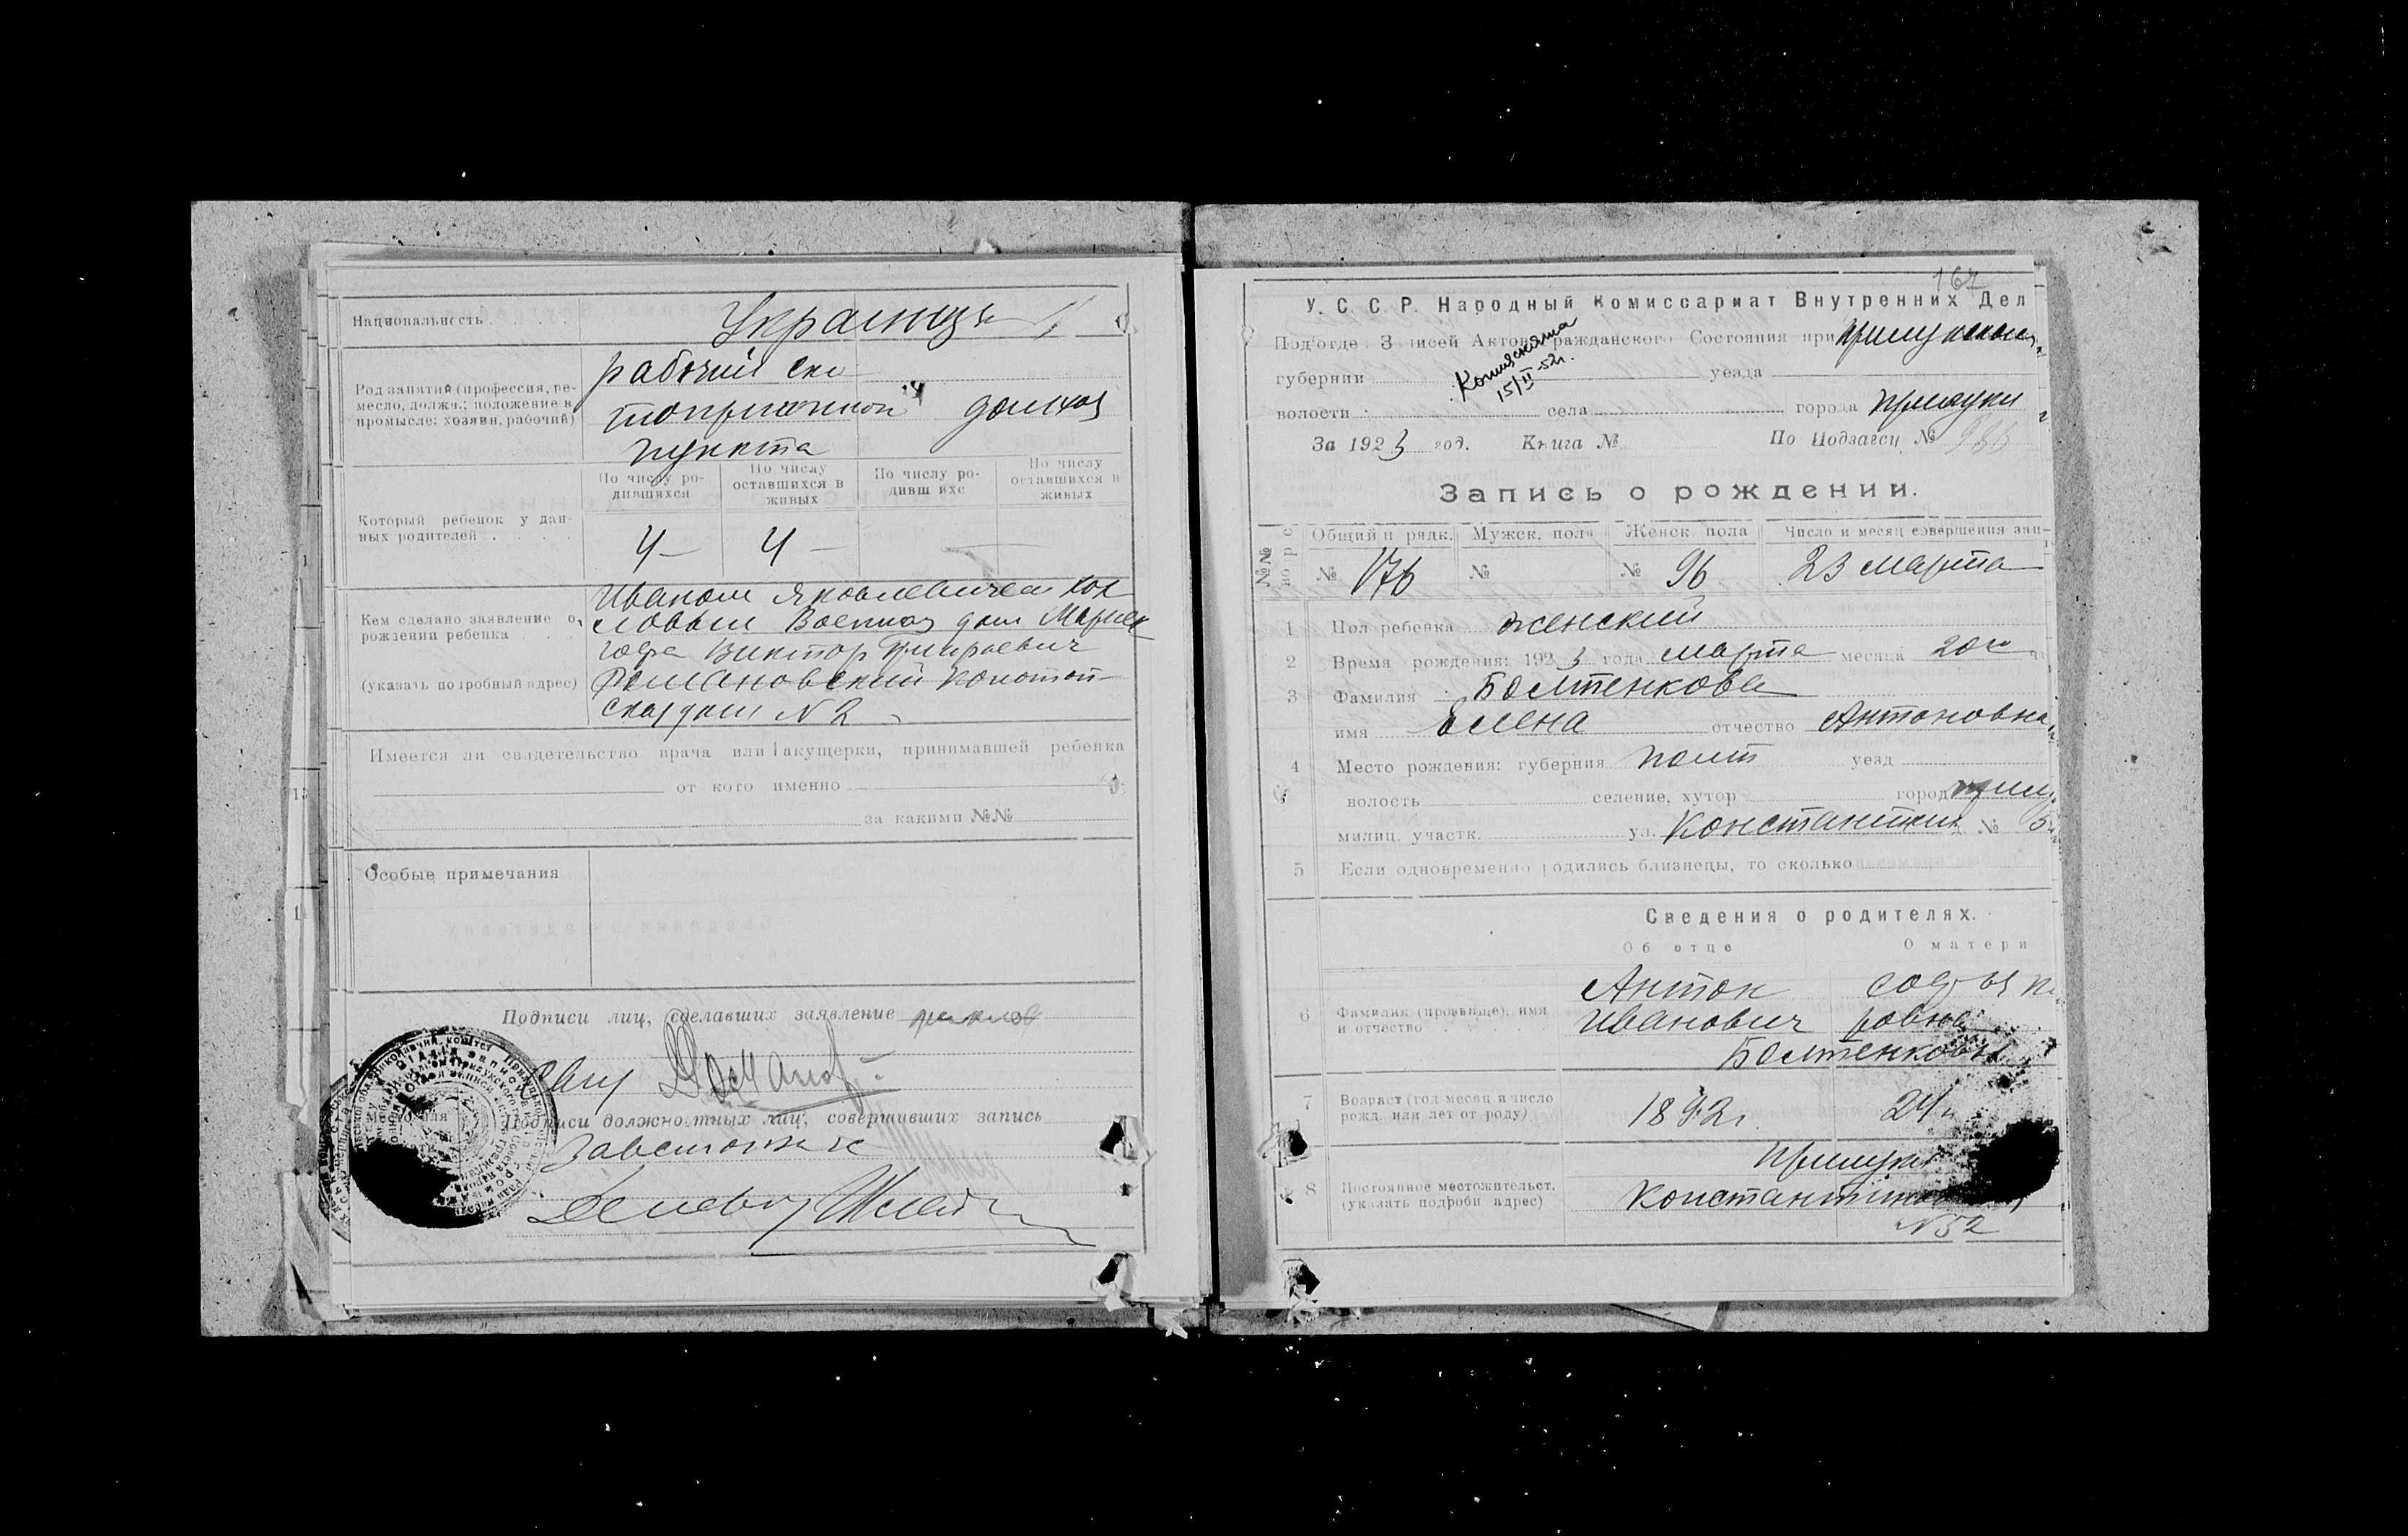 Национальность
Украинцы
Род занятий (профессия, ре-
месло, должн.; положение в
промысле: хозяин, рабочий)
рабочий ско
топриемной домхоз
пункта
Который ребенок у дан-
ных родителей
По числу ро-
дившихся
По числу
оставшихся в
живых
По числу ро-
дивш ихс
По числу
оставшихся в
живых
4 — 4 —
Кем сделано заявление о
рождении ребенка
(указать подробный адрес)
Иваном Яковлевичем Коз
ловым Военная дом
Виктор Григорьевич
Романовский Конотоп
ская дом N 2
Имеется ли свидетельство врача или акушерки, принимавшей ребенка
от кого именно
за какими №№
Особые примечания
Подписи лиц, сделавших заявление
Подписи должностных лиц, совершивших запись
167
У. С. С. Р. Народный Комиссариат Внутренних Дел
Под'отде Записей Актов Гражданского Состояния при Прилукском
губернии уезда
15/II-52г.
волости села города Прилуки
За 1923 год. Книга № По Подзагсу №
Запись о рождении.
№№
Общий п рядк. Мужск. пола Женск. пола Число и месяц совершения зап-
№ 176 № № 96 23 марта
1 Пол ребенка женский
2 Время рождения: 1923 года марта месяца 20го
3 Фамилия Болтенкова
имя Елена отчество Антоновна
4 Место рождения: губерния Полт уезд
волость селение, хутор город Прил
милиц. участк. ул. Константин д. № 5
5 Если одновременно родились близнецы, то сколько
Сведения о родителях.
Об отце О матери
6 Фамилия (прозвище), имя
и отчество
Антон Софья П
Иванович ровна
Болтенковы
7 Возраст (год месяц и число
рожд. или лет от роду)
1892г. 24
8 Постоянное местожительст.
(указать подробн адрес)
Прилуки
Константинов
N 52